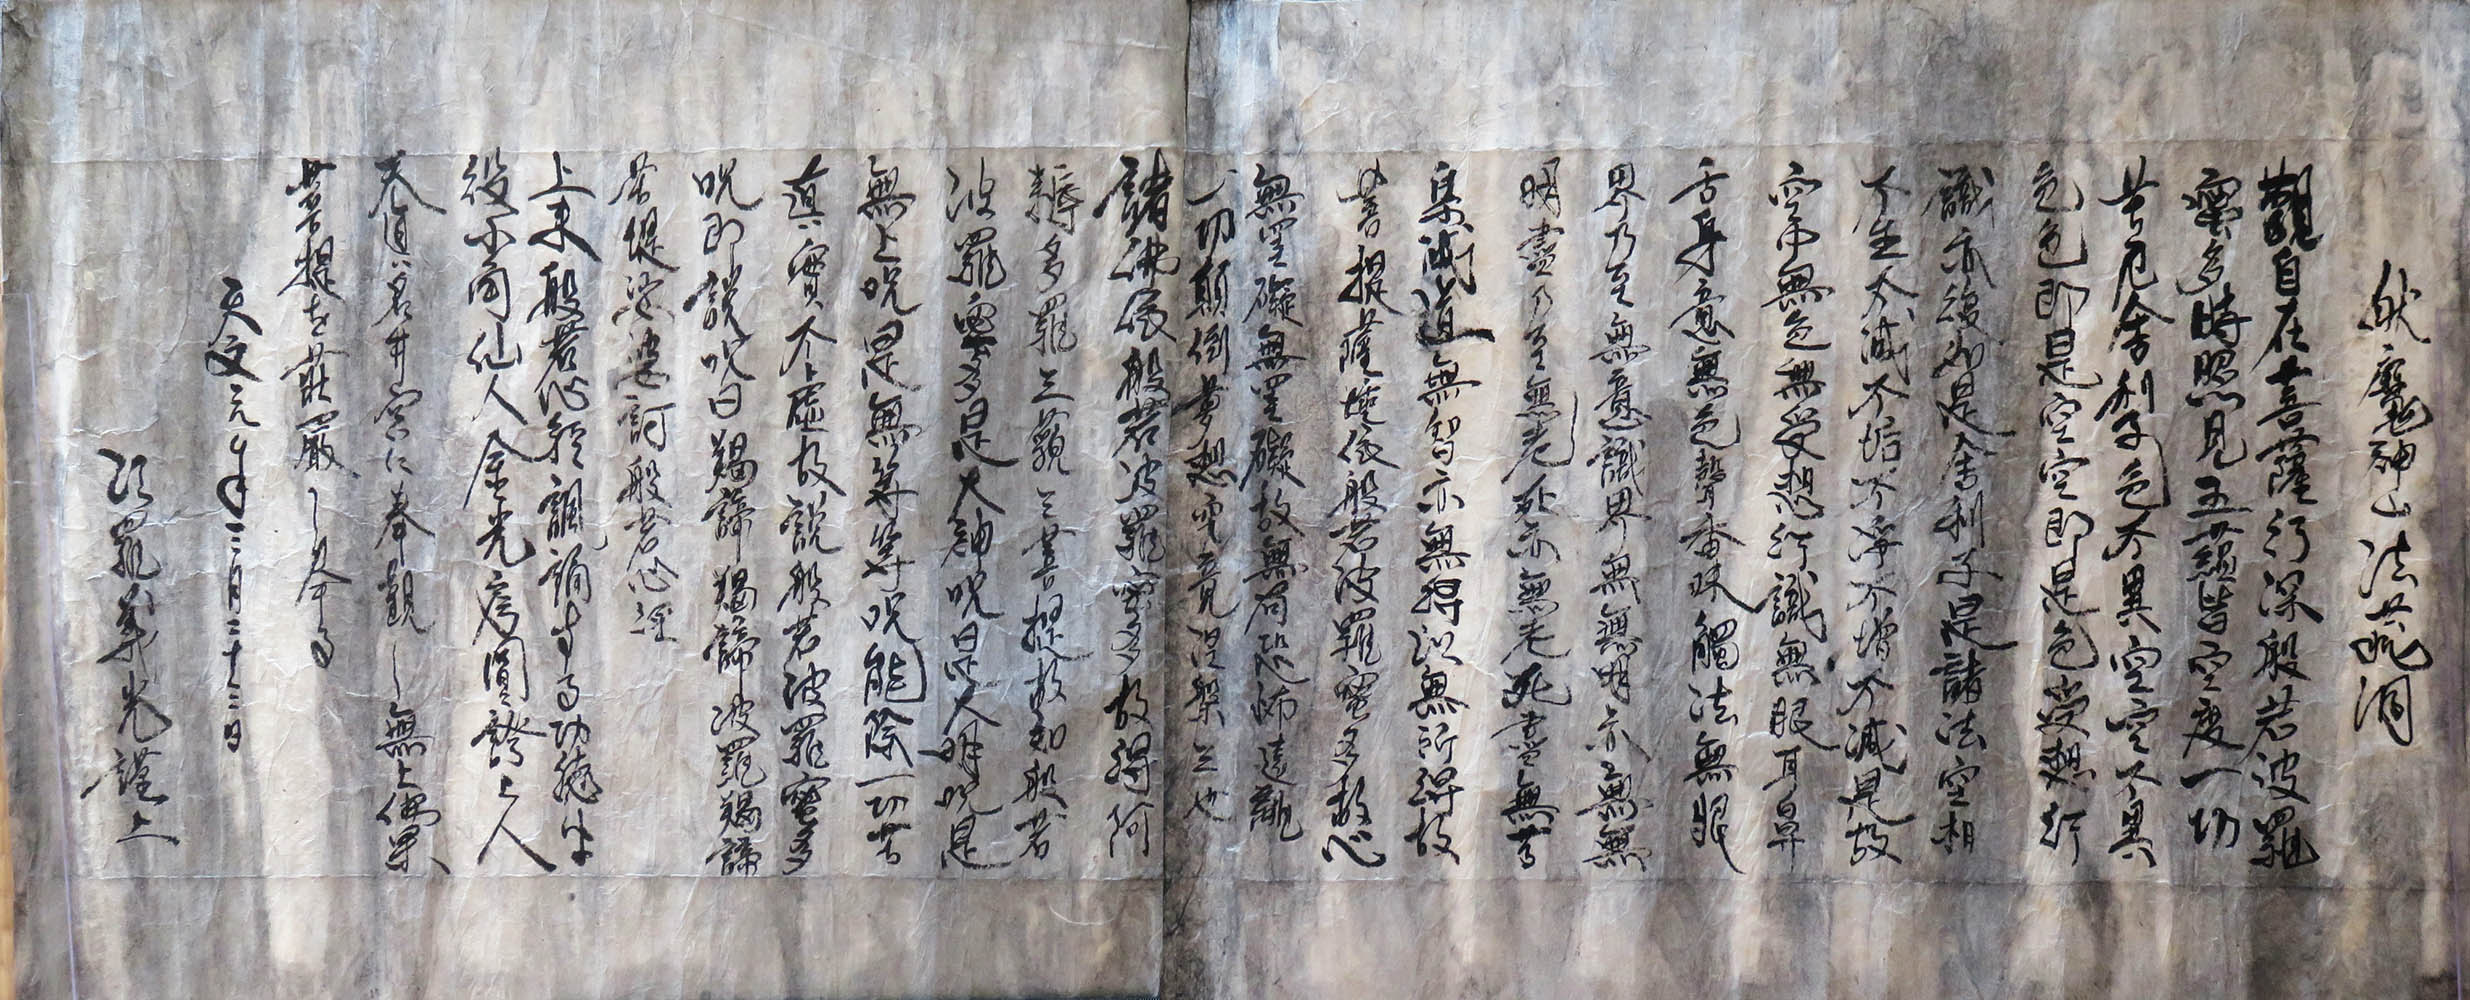 魔神山法
觀自在菩薩行深般若波羅
蜜多時照見五蘊皆空度一切
苦厄舍利子色不異空空不異
色色即是空空即是色受想行
識亦復如是舍利子是諸法空相
不生不滅不垢不淨不增不減是故
空中無色無受想行識無眼耳鼻
舌身意無色聲香味觸法無眼
界乃至無意識界無無明亦無無
明盡乃至無老死亦無老死盡無苦
集滅道無智亦無得以無所得故
菩提薩埵依般若波羅蜜多故心
無罣礙無罣礙故無有恐怖遠離
一切顛倒夢想究竟涅槃三世
諸佛依般若波羅蜜多故得阿
耨多羅三藐三菩提故知般若
波羅蜜多是大神呪是大明呪是
無上呪是無等等呪能除一切苦
真實不虛故說般若波羅蜜多
呪即說呪曰羯諦羯諦波羅羯諦
菩提娑婆訶般若心経
上来般若心経諷誦功徳
役小角仙人余光房圓上人
奉観無上佛果
菩提荘厳
天文元年三月二十三日
光謹上